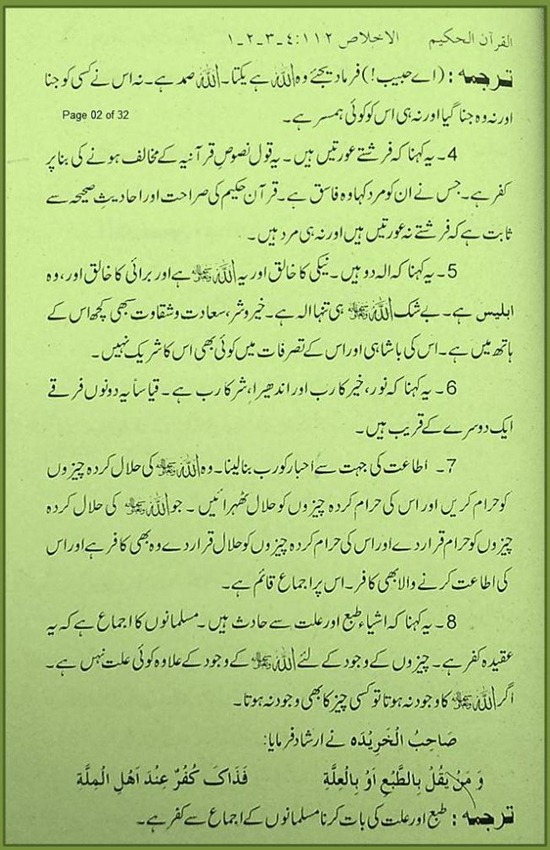 القرآن الحکیم الاخلاص ۱۱۲:۴-۳-۲-۱
ترجمہ : (اے حبیب!) فرما دیجئے وہ اللہ ہے یکتا۔ اللہ صمد ہے۔ نہ اس نے کسی کو جنا
اور نہ وہ جنا گیا اور نہ ہی اس کو کوئی ہمسر ہے۔
Page 02 of 32
4۔ یہ کہنا کہ فرشتے عورتیں ہیں۔ یہ قول نصوصِ قرآنیہ کے مخالف ہونے کی بنا پر
کفر ہے۔ جس نے ان کو مرد کہا وہ فاسق ہے۔ قرآن حکیم کی صراحت اور احادیثِ صحیحہ سے
ثابت ہے کہ فرشتے نہ عورتیں ہیں اور نہ ہی مرد ہیں۔
5۔ یہ کہنا کہ الہ دو ہیں۔ نیکی کا خالق اور یہ اللہ ﷻ ہے اور برائی کا خالق اور، وہ
ابلیس ہے۔ بے شک اللہ ﷻ ہی تنہا الہ ہے۔ خیر و شر، سعادت و شقاوت سبھی کچھ اس کے
ہاتھ میں ہے۔ اس کی باشاہی اور اس کے تصرفات میں کوئی بھی اس کا شریک نہیں۔
6۔ یہ کہنا کہ نور، خیر کا رب اور اندھیرا، شر کا رب ہے۔ قیاساً یہ دونوں فرقے
ایک دوسرے کے قریب ہیں۔
7۔ اطاعت کی جہت سے احبار کو رب بنا لینا۔ وہ اللہ ﷻ کی حلال کردہ چیزوں
کو حرام کریں اور اس کی حرام کردہ چیزوں کو حلال ٹھہرائیں۔ جو اللہ ﷻ کی حلال کردہ
چیزوں کو حرام قرار دے اور اس کی حرام کردہ چیزوں کو حلال قرار دے وہ بھی کافر ہے اور اس
کی اطاعت کرنے والا بھی کافر۔ اس پر اجماع قائم ہے۔
8۔ یہ کہنا کہ اشیاء طبع اور علت سے حادث ہیں۔ مسلمانوں کا اجماع ہے کہ یہ
عقیدہ کفر ہے۔ چیزوں کے وجود کے لئے اللہ ﷻ کے وجود کے علاوہ کوئی علت نہیں ہے۔
اگر اللہ ﷻ کا وجود نہ ہوتا تو کسی چیز کا بھی وجود نہ ہوتا۔
صَاحِبُ الْخَرِیْدَہ نے ارشاد فرمایا:
وَ مَنْ یَقُلْ بِالطَّبْعِ اَوْ بِالْعِلَّةِ فَذَاکَ کُفْرٌ عِنْدَ اَهْلِ الْمِلَّةِ
ترجمہ : طبع اور علت کی بات کرنا مسلمانوں کے اجماع سے کفر ہے۔